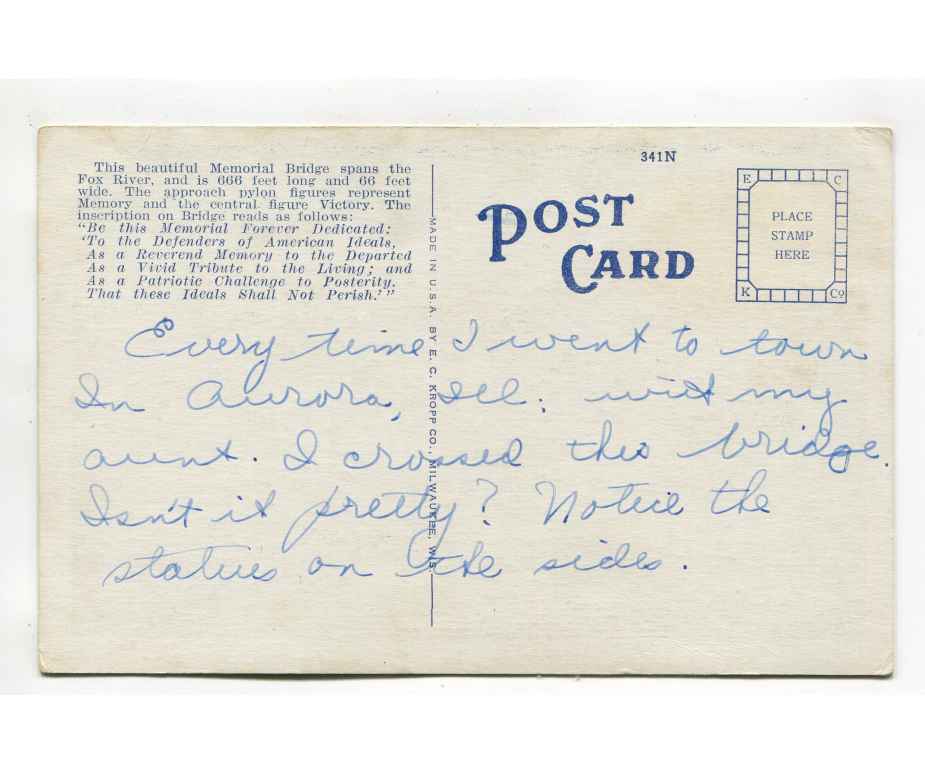 This beautiful Memorial Bridge spans the
Fox River, and is 666 feet long and 66 feet
wide. The approach pylon figures represent
Memory and the central figure Victory. The
inscription on Bridge reads as follows:
"Be this Memorial Forever Dedicated:
'To the Defenders of American Ideals,
As a Reverend Memory to the Departed
As a Vivid Tribute to the Living; and
As a Patriotic Challenge to Posterity.
That these Ideals Shall Not Perish.'"
MADE IN U.S.A. BY E. C. KROPP CO., MILWAUKEE, WIS.
341N
POST
CARD
E C
PLACE
STAMP
HERE
K Co
Every time I went to town
In Aurora, Ill. with my
aunt. I crossed this bridge.
Isn't it pretty? Notice the
statues on the sides.